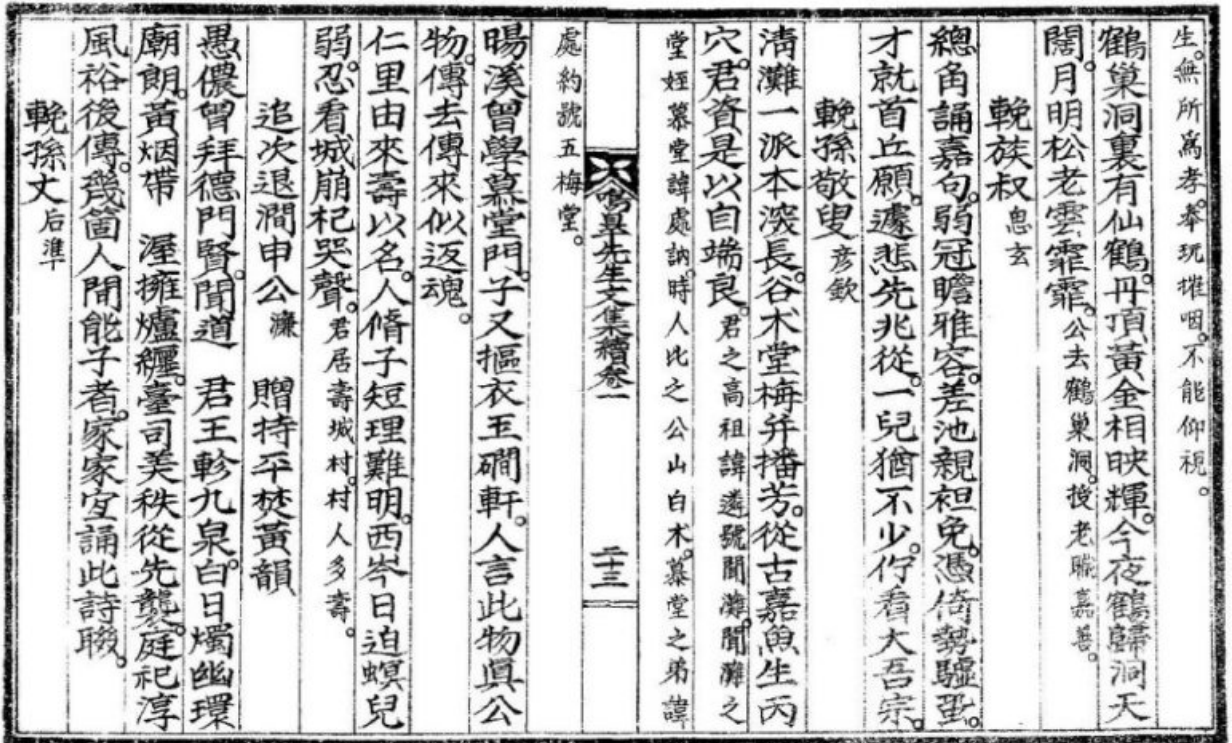 生。無所爲孝。奉玩摧咽。不能仰視。
鶴巢洞裏有仙鶴。丹頂黃金相映輝。今夜鶴歸洞天
闊。月明松老雲霏霏。公去鶴巢洞。授老職嘉善。
輓族叔 思玄
總角誦嘉句。弱冠瞻雅容。差池親袒免。憑倚勢驢蛩。
才就首丘願。遽悲先兆從。一兒猶不少。佇看大吾宗。
輓孫敬叟 彦欽
淸灘一派本深長。谷朮堂梅幷播芳。從古嘉魚生丙
穴。君資是以自端良。君之高祖諱遴號聞灘。聞灘之
堂姪慕堂諱處訥。時人比之公山白朮。慕堂之弟諱
處約號五梅堂。
先生文集續卷一
二十三
暘溪曾學慕堂門。子又摳衣玉磵軒。人言此物眞公
物。傳去傳來似返魂。
仁里由來壽以名。人脩子短理難明。西岑日迫螟兒
弱。忍看城崩杞哭聲。君居壽城村。村人多壽。
追次退澗申公 濂 贈持平焚黃韻
愚儂曾拜德門賢。聞道 君王軫九泉。白日燭幽環
廟朗。黃烟帶 渥擁爐纒。臺司美秩從先襲。庭祀淳
風裕後傳。幾箇人間能子者。家家宜誦此詩聯。
輓孫丈 后準